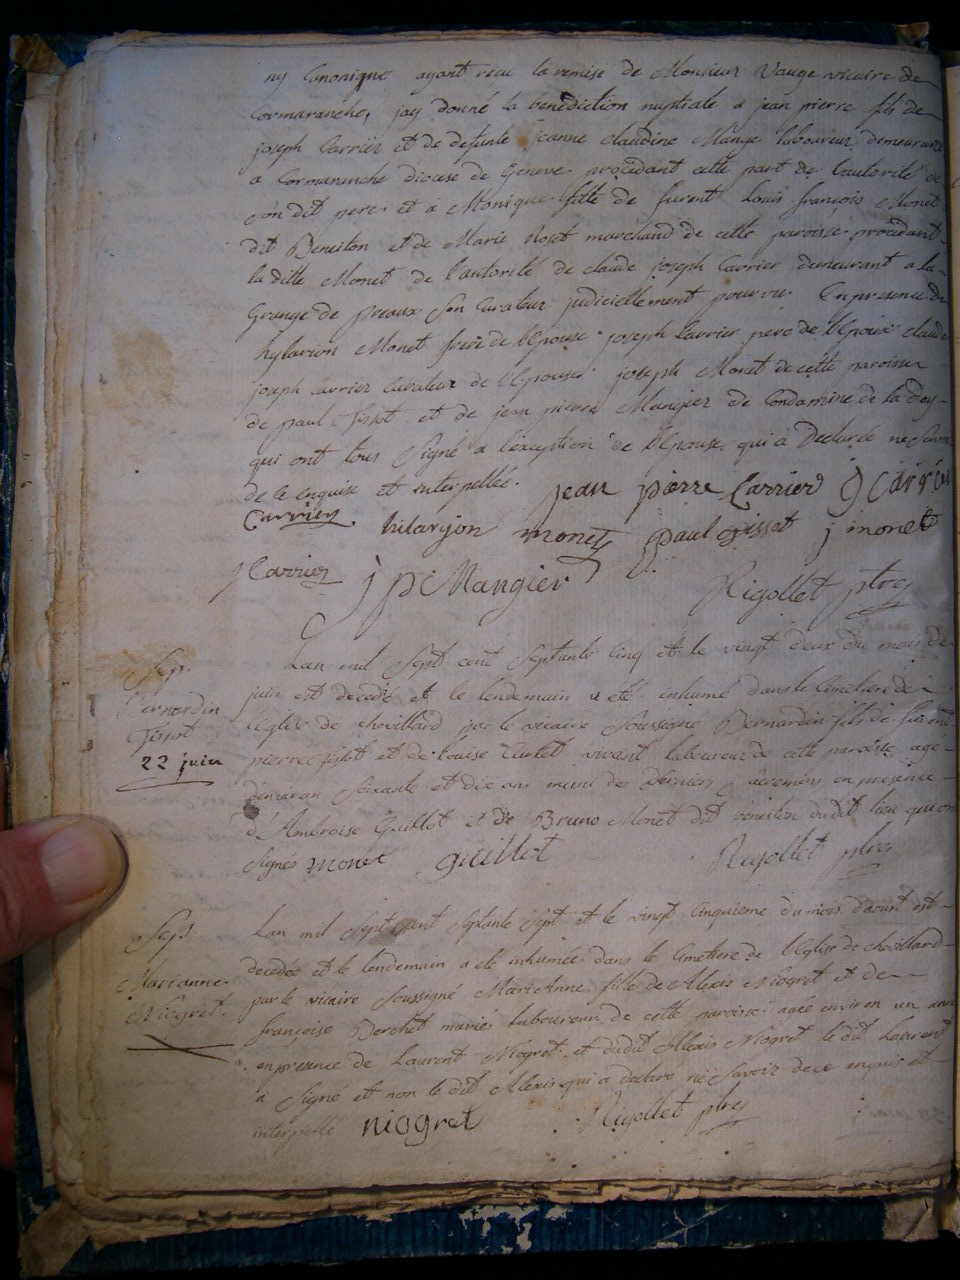 ny Canonique ayant recu la remise de Monsieur Vauge vicaire de
Cormaranche, jay donné la benediction nuptiale a jean pierre fils de
joseph Carrier et de defunte jeanne claudine Mange laboureur demeurant
a Cormaranche diocese de Geneve procedant cette part de l'autorité de
son dit pere et a Monique fille de furent Louis françois Monet
dit Beneiton et de Marie Roset marchand de cette paroisse procedant
la ditte Monet de l'autorité de claude joseph Carrier demeurant a la
Grange de preaux son Curateur judiciellement pourvu. En presence de
hylarion Monet frere de l'Epouse joseph Carrier pere de l'Epoux claude
joseph Carrier Curateur de l'Epouse joseph Monet de cette paroisse
de paul Tissot et de jean pierre Mangier de Condamine de la Doy
qui ont tous Signé a l'exception de l'Epouse qui a Declarée ne Savoir
de ce enquise et interpellée.
jean pierre Carrier J Carrier
Carrier hilarjon monet paul tissot j monet
j Carrier j pi Mangier Rigollet ptre
Lan mil Sept cent Septante Cinq et le vingt deux du mois de
juin est decedé et le lendemain a été inhumé dans le Cimetiere de
l'Eglise de chevillard par le vicaire Soussigné Bernardin fils de furent
pierre tissot et de Louise Curtet vivant laboureur de cette paroisse agé
denviron Soixante et dix ans muni des derniers Sacremens en presence
d'Ambroise Guillot et de Bruno Monet dit beneiton dudit lieu qui ont
Signés monet guillot Rigollet ptre
Sep.
Bernardin
Tissot
22 juin
Lan mil Sept cent Septante Sept et le vingt Cinquieme du mois d'aoust est
decedée et le lendemain a été inhumée dans le Cimetiere de l'Eglise de chevillard
par le vicaire Soussigné MarieAnne fille de Alexis Niogret et de
françoise Berchet mariés laboureur de cette paroisse agée environ un ans
en presence de Laurent Niogret et dudit Alexis Niogret le dit Laurent
a Signé et non le dit Alexis qui a declaré ne Savoir de ce enquis et
interpellé niogret Rigollet ptre
Sep.
Marianne
Niogret